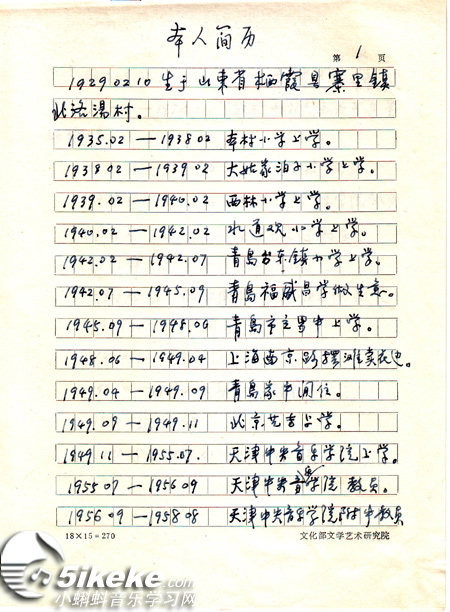 本人简历
第 1 页
1929 02 10 生于山东省栖霞县寨里镇
北洛汤村。
1935.02 — 1938 02 本村小学上学。
1938 02 — 1939 02 大姑家泊子小学上学。
1939.02 — 1940.02 西林小学上学。
1940.02 — 1942.02 水道观小学上学。
1942.02 — 1942.07 青岛台东镇小学上学。
1942.07 — 1945.09 青岛福盛昌学做生意。
1945.09 — 1948.06 青岛市立男中上学。
1948.06 — 1949.04 上海南京路摆滩卖衣边。
1949.04 — 1949.09 青岛家中闲住。
1949.09 — 1949.11 北京艺专上学。
1949 11 — 1955.07. 天津中央音乐学院上学。
1955 07 — 1956 09 天津中央音乐学院 教员。
1956 09 — 1958 08 天津中央音乐学院附中教员
18×15=270
文化部文学艺术研究院
51keke.com
小蝌蚪音乐学习网